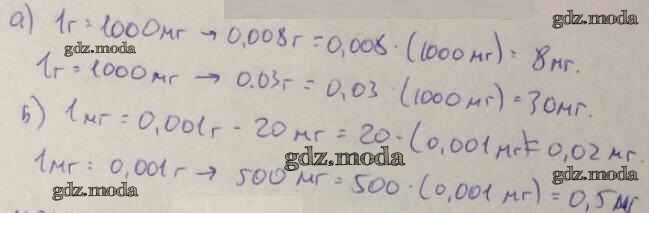 gdz.moda
а) 1г = 1000 мг → 0,008г = 0,008 · (1000 мг) = 8 мг.
gdz.moda
1г = 1000 мг → 0.03г = 0,03 · (1000 мг) = 30 мг.
gdz.moda
б) 1 мг = 0,001г - 20 мг = 20 · (0,001 мг) = 0,02 мг.
gdz.moda
1 мг = 0,001г → 500 мг = 500 · (0,001 мг) = 0,5 мг
gdz.moda
gdz.moda